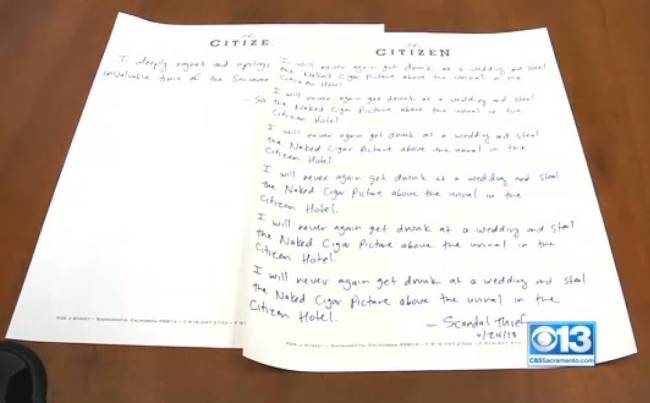 The
CITIZE
I deeply regret and apolog
invaluable time of the Sacrame
The
CITIZEN
I will never again get drunk at a wedding and steal
the Naked Cigar Picture above the urinal in the
Citizen Hotel
I will never again get drunk at a wedding and steal
the Naked Cigar Picture above the urinal in the
Citizen Hotel
I will never again get drunk at a wedding and steal
the Naked Cigar Picture above the urinal in the
Citizen Hotel
I will never again get drunk at a wedding and steal
the Naked Cigar Picture above the urinal in the
Citizen Hotel.
I will never again get drunk at a wedding and steal
the Naked Cigar Picture above the urinal in the
Citizen Hotel
I will never again get drunk at a wedding and steal
the Naked Cigar Picture above the urinal in the
Citizen Hotel.
- Scandal Thief
4/24/13
CBS 13
CBSSacramento.com